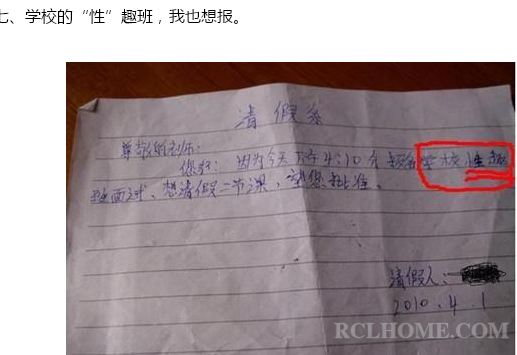 七、学校的“性”趣班，我也想报。
请假条
尊敬的老师：
您好：因为今天下午4:10分学校性趣
班面试、想请假一节课，望您批准。
请假人：
2010.4.1
RCLHOME.COM